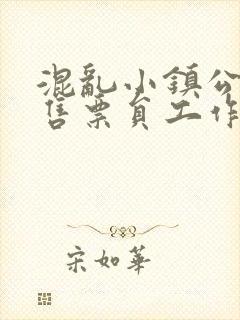 混亂小鎮公
售票員工作
宋如華